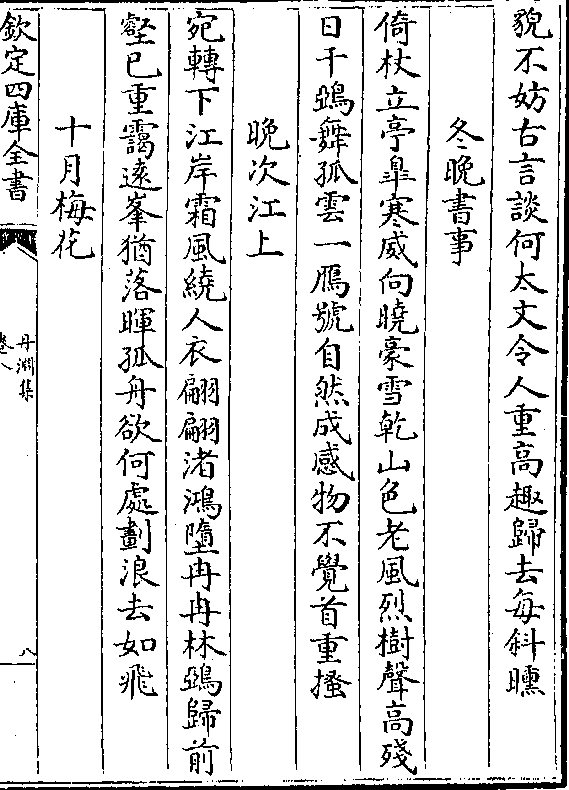 貌不妨古言談何太文令人重高趣歸去每斜曛
冬晚書事
倚杖立亭臯寒威向曉豪雪乾山色老風烈樹聲高殘
日千鵶舞孤雲一鴈號自然成感物不覺首重搔
晚次江上
宛轉下江岸霜風繞人衣翩翩渚鴻墮冉冉林鵶歸前
壑已重靄遠峯猶落暉孤舟欲何處劃浪去如飛
十月梅花
欽定四庫全書
丹淵集
卷八
八